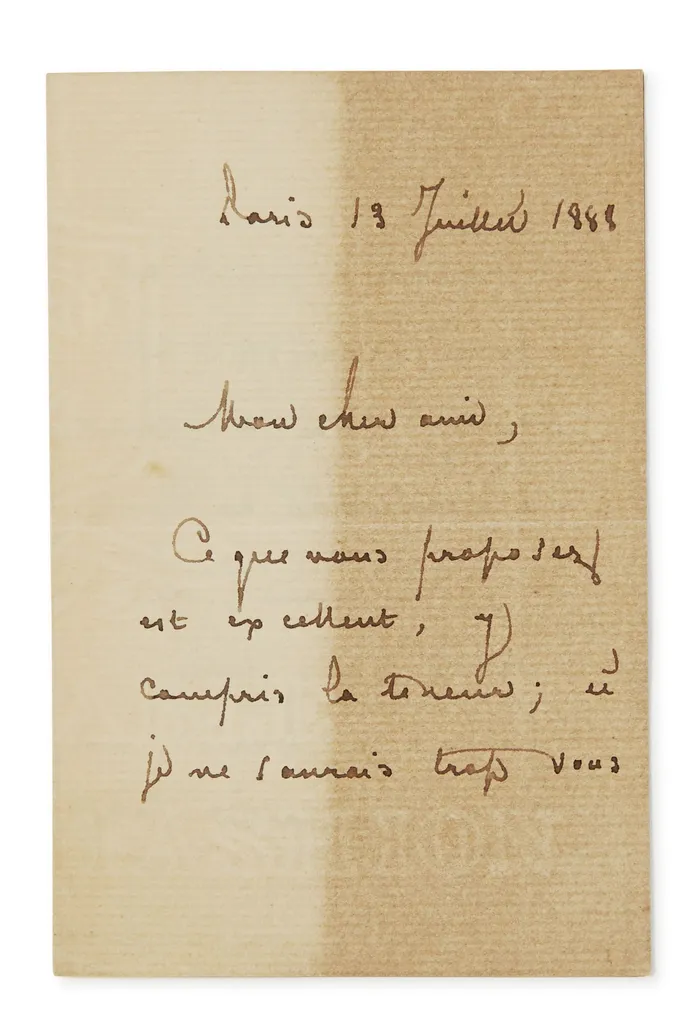 Paris 13 Juillet 1888
Mon cher ami,
Ce que vous proposez
est excellent, y
compris la teneur; et
je ne saurais trop vous